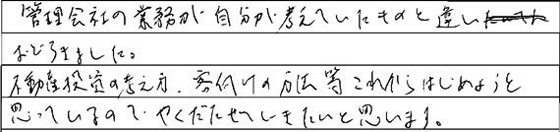 管理会社の業務が自分が考えていたものと違い
おどろきました。
不動産投資の考え方、客付けの方法等これからはじめようと
思っているので、やくだたせていきたいと思います。